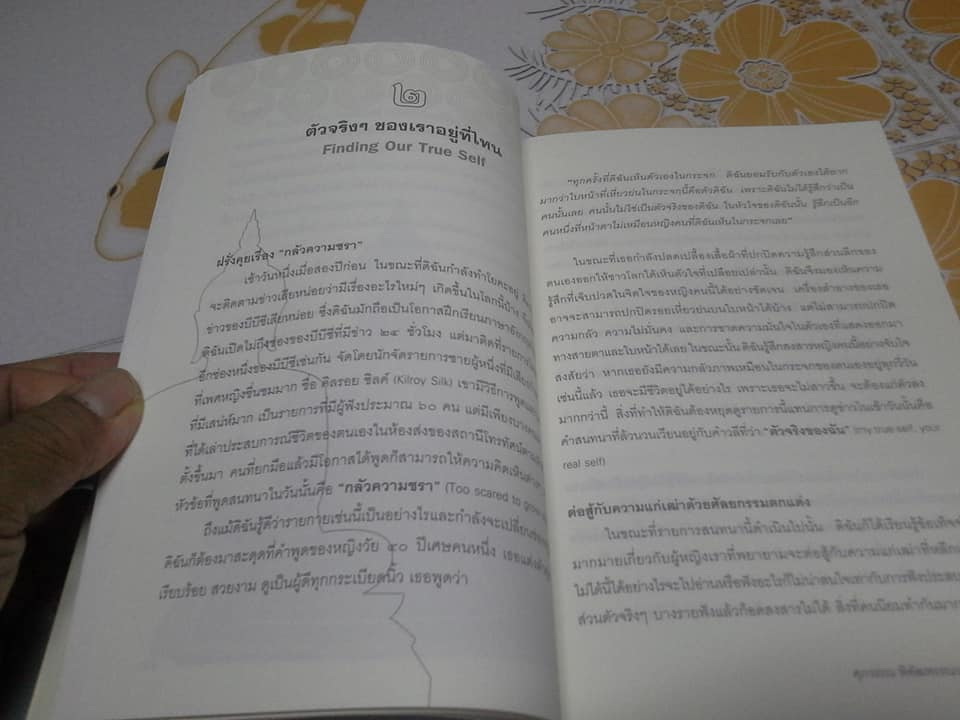 ๒
ตัวจริงๆ ของเราอยู่ที่ไหน
Finding Our True Self
ฝรั่งคุยเรื่อง "กลัวความชรา"
เช้าวันหนึ่งเมื่อสองปีก่อน ในขณะที่ดิฉันกำลังทำโยคะอยู่
จะติดตามข่าวเสียหน่อยว่ามีเรื่องอะไรใหม่ๆ เกิดขึ้นในโลกนี้บ้าง
ข่าวของบีบีซีเสียหน่อย ซึ่งดิฉันมักถือเป็นโอกาสฝึกเรียนภาษาอังกฤษ
ดิฉันเปิดไม่ถึงช่องของบีบีซีที่มีข่าว ๒๔ ชั่วโมง แต่มาติดที่รายการ
อีกช่องหนึ่งของบีบีซีเช่นกัน จัดโดยนักจัดรายการชายผู้หนึ่งที่มีเสียง
ที่เพศหญิงชื่นชมมาก ชื่อ คิลรอย ซิลค์ (Kilroy Silk) เขามีวิธีการพูด
ที่มีเสน่ห์มาก เป็นรายการที่มีผู้ฟังประมาณ ๖๐ คน แต่มีเพียงบาง
ที่ได้เล่าประสบการณ์ชีวิตของตนเองในห้องส่งของสถานีโทรทัศน์ตาม
ตั้งขึ้นมา คนที่ยกมือแล้วมีโอกาสได้พูดก็สามารถให้ความคิดเห็น
หัวข้อที่พูดสนทนาในวันนั้นคือ "กลัวความชรา" (Too scared to grow
ถึงแม้ดิฉันรู้ดีว่ารายการเช่นนี้เป็นอย่างไรและกำลังจะเปลี่ยนช่อง
ดิฉันก็ต้องมาสะดุดที่คำพูดของหญิงวัย ๔๐ ปีเศษคนหนึ่ง เธอแต่งตัว
เรียบร้อย สวยงาม ดูเป็นผู้ดีทุกกระเบียดนิ้ว เธอพูดว่า
"ทุกครั้งที่ดิฉันเห็นตัวเองในกระจก ดิฉันยอมรับกับตัวเองได้ยาก
มากว่าใบหน้าที่เหี่ยวย่นในกระจกนี้คือตัวดิฉัน เพราะดิฉันไม่ได้รู้สึกว่าเป็น
คนนั้นเลย คนนั้นไม่ใช่เป็นตัวจริงของดิฉัน ในหัวใจของดิฉันนั้น รู้สึกเป็นอีก
คนหนึ่งที่หน้าตาไม่เหมือนหญิงคนที่ดิฉันเห็นในกระจกเลย"
ในขณะที่เธอกำลังปลดเปลื้องเสื้อผ้าที่ปกปิดความรู้สึกส่วนลึกของ
ตนเองออกให้ชาวโลกได้เห็นตัวใจที่เปลือยเปล่านั้น ดิฉันจึงมองเห็นความ
รู้สึกที่เจ็บปวดในจิตใจของหญิงคนนี้ได้อย่างชัดเจน เครื่องสำอางของเธอ
อาจจะสามารถปกปิดรอยเหี่ยวย่นบนใบหน้าได้บ้าง แต่ไม่สามารถปกปิด
ความกลัว ความไม่มั่นคง และการขาดความมั่นใจในตัวเองที่แสดงออกมา
ทางสายตาและใบหน้าได้เลย ในขณะนั้น ดิฉันรู้สึกสงสารหญิงคนนี้อย่างจับใจ
สงสัยว่า หากเธอยังมีความกลัวภาพเหมือนในกระจกของตนเองอยู่ทุกวี่วัน
เช่นนี้แล้ว เธอจะมีชีวิตอยู่ได้อย่างไร เพราะเธอจะไม่สาวขึ้น จะต้องแก่ตัวลง
มากกว่านี้ สิ่งที่ทำให้ดิฉันต้องหยุดดูรายการนี้แทนการดูข่าวในเช้าวันนั้นคือ
คำสนทนาที่ล้วนวนเวียนอยู่กับคำวลีที่ว่า "ตัวจริงของฉัน" (my true self, your
real self)
ต่อสู้กับความแก่เฒ่าด้วยศัลยกรรมตกแต่ง
ในขณะที่รายการสนทนานี้ดำเนินไปนั้น ดิฉันก็ได้เรียนรู้ข้อเท็จจริง
มากมายเกี่ยวกับผู้หญิงเราที่พยายามจะต่อสู้กับความแก่เฒ่าที่หลีก
ไม่ได้นี้ได้อย่างไรจะไปอ่านหรือฟังอะไรก็ไม่น่าสนใจเท่ากับการฟังประสบ
ส่วนตัวจริงๆ บางรายฟังแล้วก็อดสงสารไม่ได้ สิ่งที่คนนิยมทำกันมาก
ศุภวรรณ